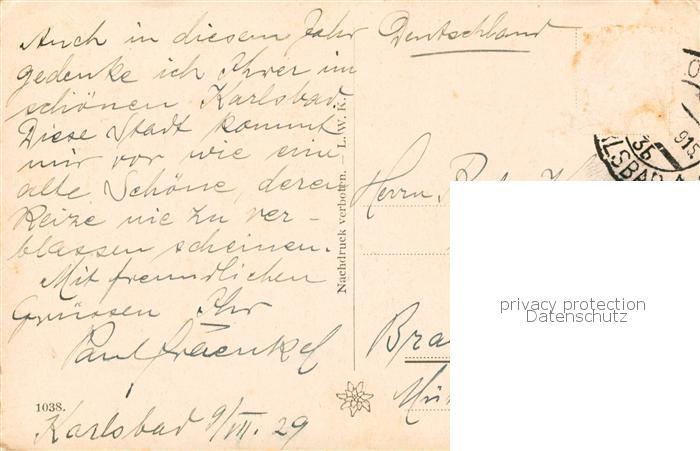 Auch in diesem Jahr
gedenke ich Ihrer im
schönen Karlsbad.
Diese Stadt kommt
mir vor wie eine
alte Schöne, deren
Reize nie zu ver-
blassen scheinen.
Mit freundlichen
Grüssen Ihr
Paul Fraenkel
1038.
Karlsbad 9/VII. 29
Nachdruck verboten. — L. W. K.
Deutschland
Herrn
Bra
Mü
privacy protection
Datenschutz